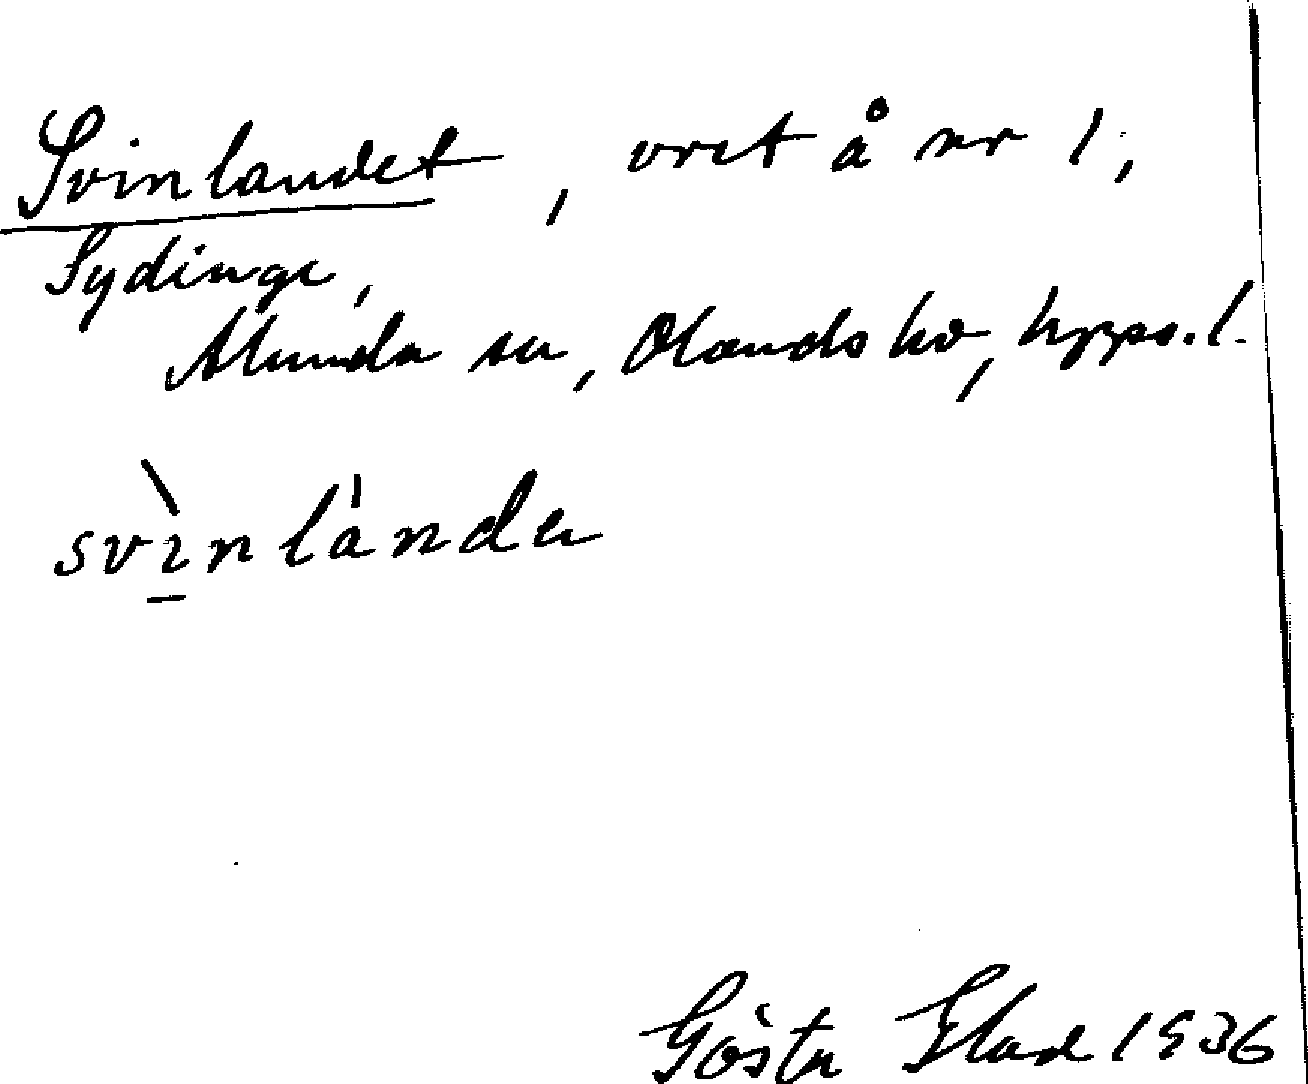 Svinlandet, vret å nr 1,
Sydinge,
Alunda sn, Olands hd, Upps. l.
svìnlànda
Gösta Elad 1936